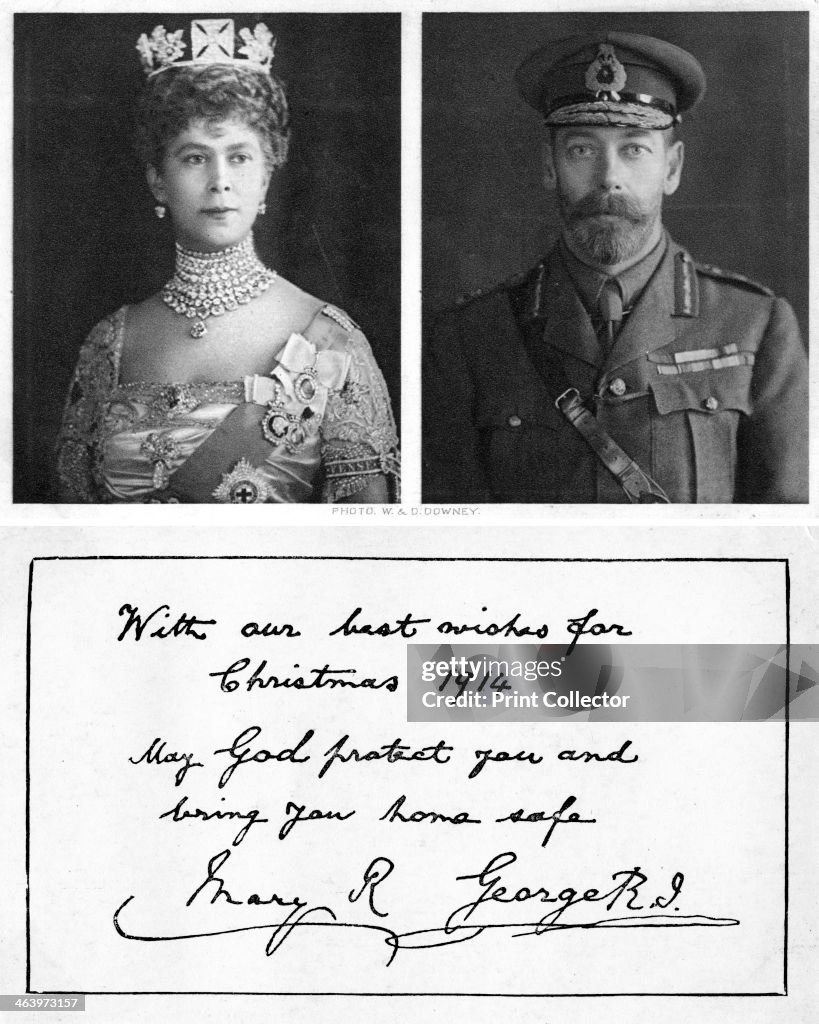 PHOTO. W. & D. DOWNEY.
With our best wishes for
Christmas 1914
gettyimages
Print Collector
May God protect you and
bring you home safe
Mary R George R.I.
463973157